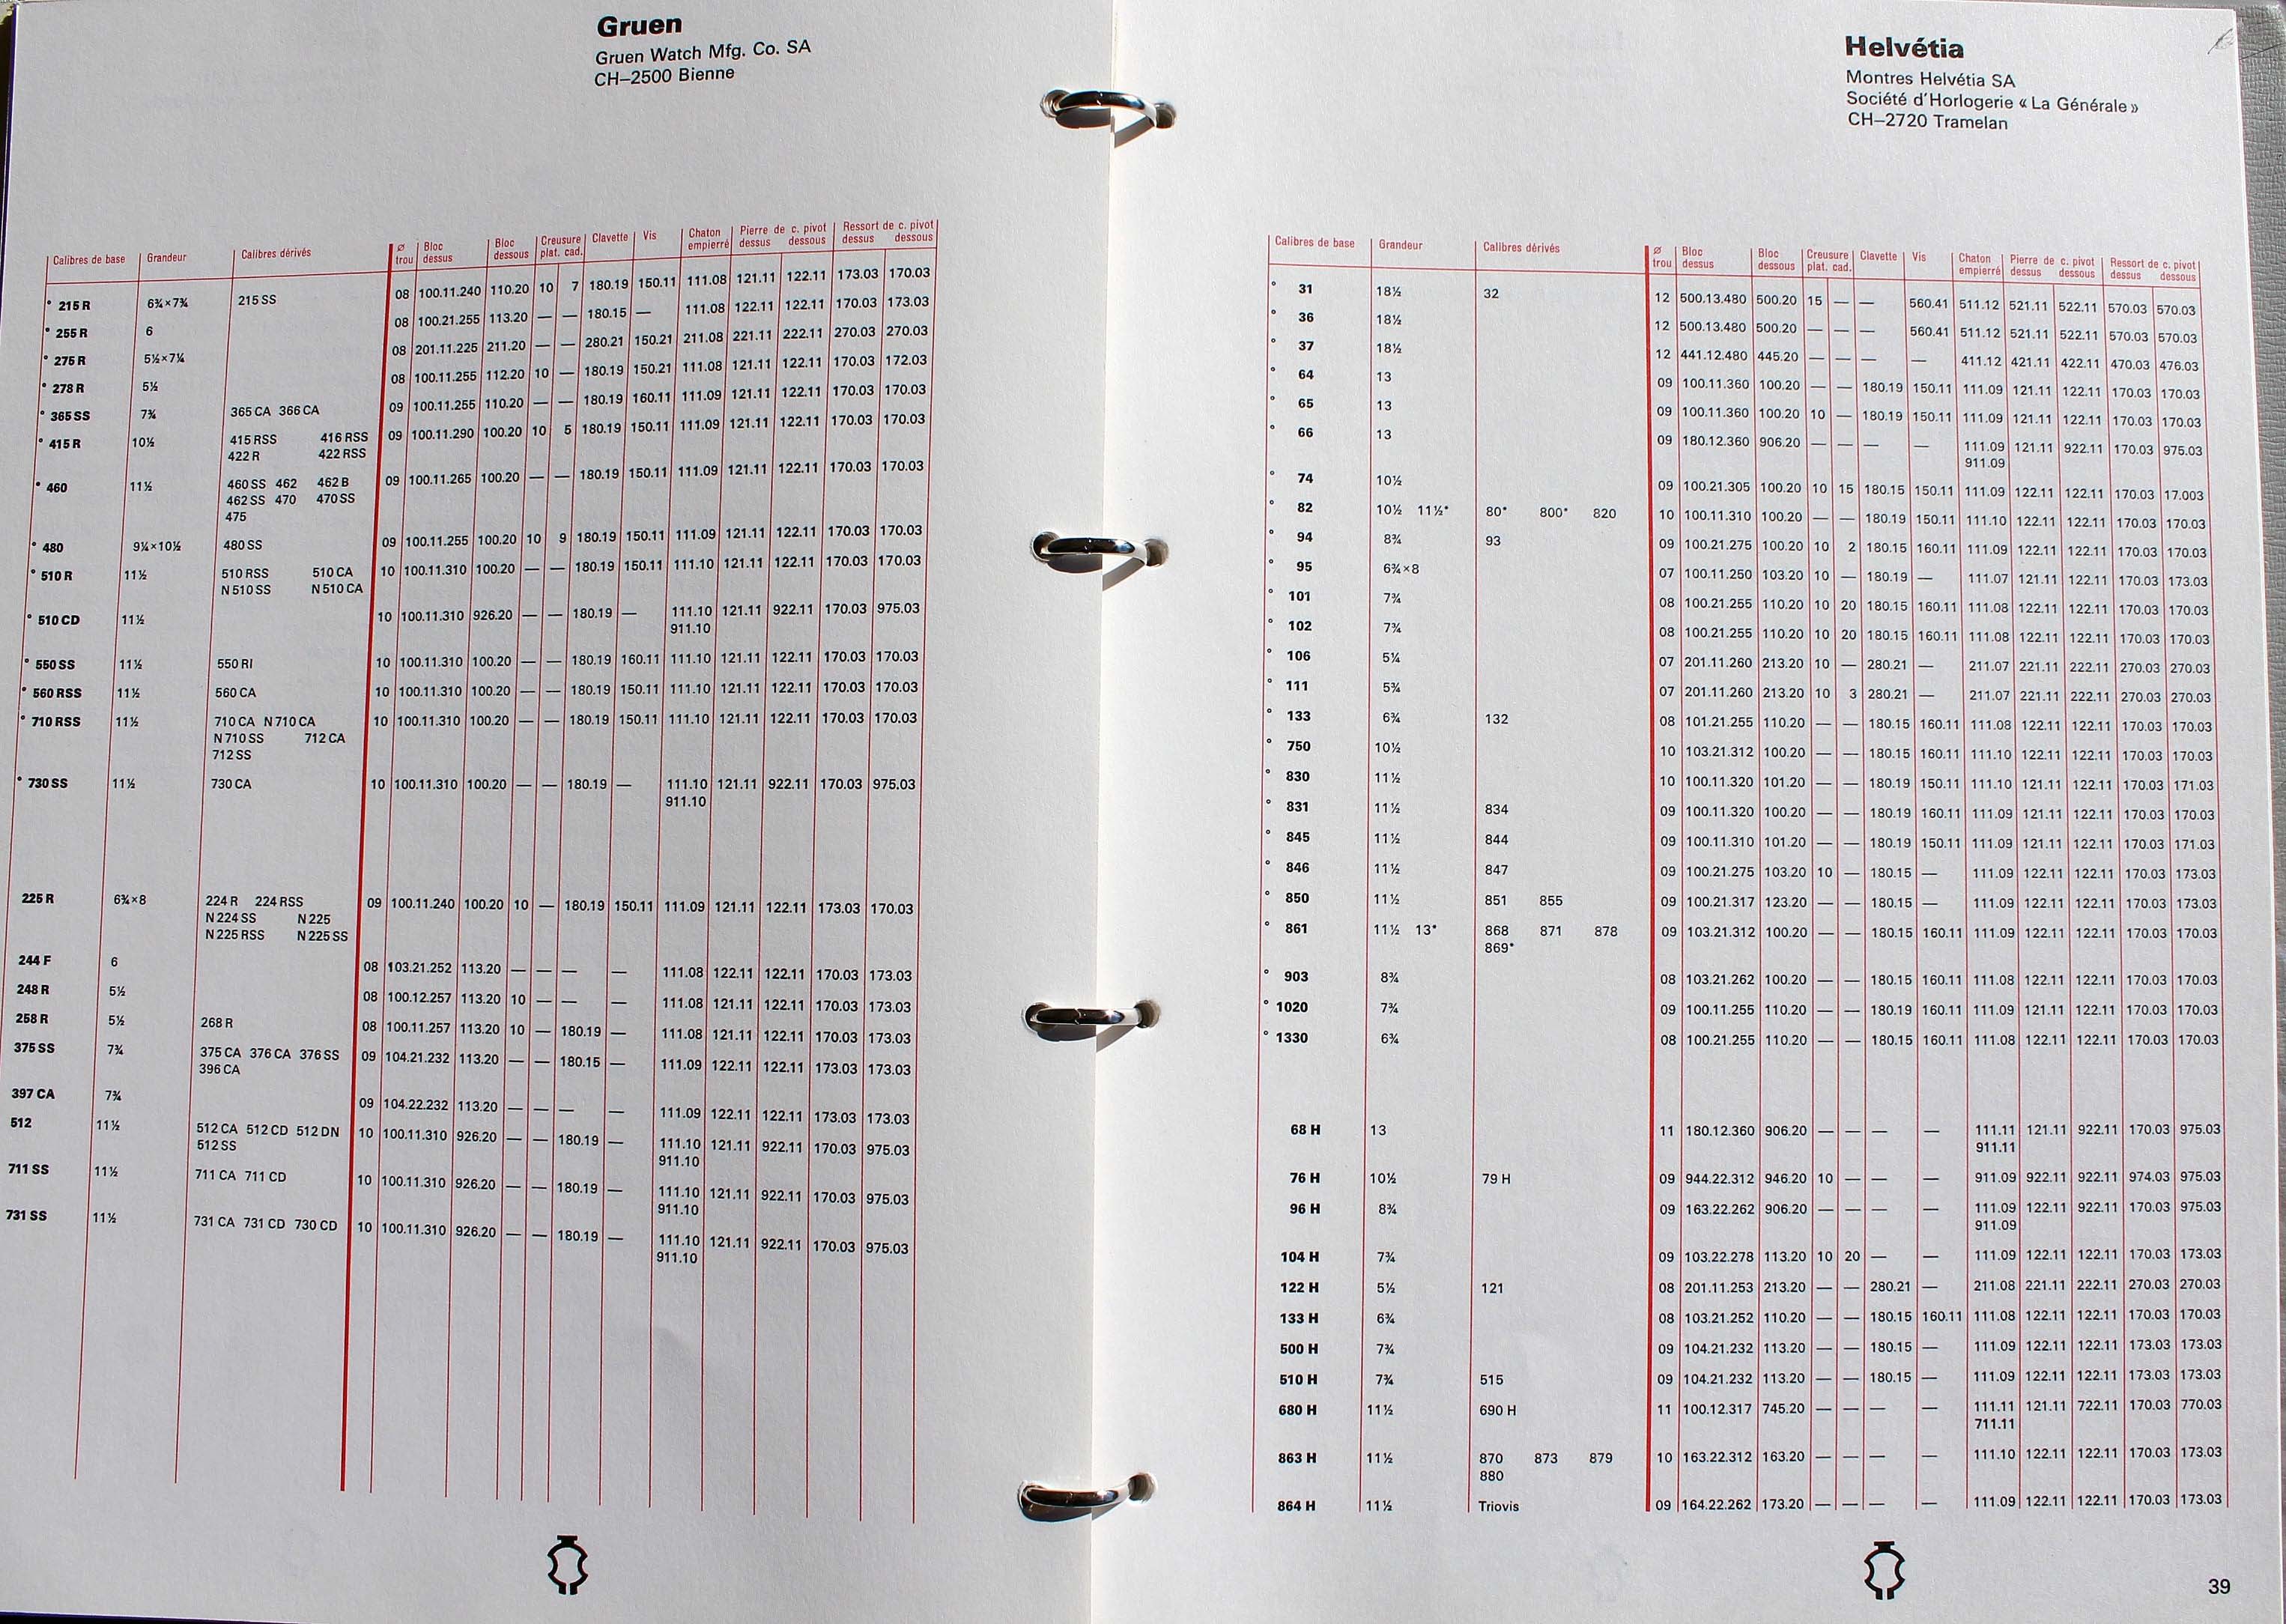 Gruen
Gruen Watch Mfg. Co. SA
CH–2500 Bienne
Calibres de base Grandeur Calibres dérivés ø trou Bloc dessus Bloc dessous Creusure plat. cad. Clavette Vis Chaton empierré Pierre de c. pivot dessus dessous Ressort de c. pivot dessus dessous
° 215 R 6¾×7¾ 215 SS 08 100.11.240 110.20 10 7 180.19 150.11 111.08 121.11 122.11 173.03 170.03
° 255 R 6 08 100.21.255 113.20 — — 180.15 — 111.08 122.11 122.11 170.03 173.03
° 275 R 5½×7¼ 08 201.11.225 211.20 — — 280.21 150.21 211.08 221.11 222.11 270.03 270.03
° 278 R 5½ 08 100.11.255 112.20 10 — 180.19 150.21 111.08 121.11 122.11 170.03 172.03
° 365 SS 7¾ 365 CA 366 CA 09 100.11.255 110.20 — — 180.19 160.11 111.09 121.11 122.11 170.03 170.03
° 415 R 10½ 415 RSS 416 RSS 09 100.11.290 100.20 10 5 180.19 150.11 111.09 121.11 122.11 170.03 170.03
422 R 422 RSS
° 460 11½ 460 SS 462 462 B 09 100.11.265 100.20 — — 180.19 150.11 111.09 121.11 122.11 170.03 170.03
462 SS 470 470 SS
475
° 480 9¼×10½ 480 SS 09 100.11.255 100.20 10 9 180.19 150.11 111.09 121.11 122.11 170.03 170.03
° 510 R 11½ 510 RSS 510 CA 10 100.11.310 100.20 — — 180.19 150.11 111.10 121.11 122.11 170.03 170.03
N 510 SS N 510 CA
° 510 CD 11½ 10 100.11.310 926.20 — — 180.19 — 111.10 121.11 922.11 170.03 975.03
911.10
° 550 SS 11½ 550 RI 10 100.11.310 100.20 — — 180.19 160.11 111.10 121.11 122.11 170.03 170.03
° 560 RSS 11½ 560 CA 10 100.11.310 100.20 — — 180.19 150.11 111.10 121.11 122.11 170.03 170.03
° 710 RSS 11½ 710 CA N 710 CA 10 100.11.310 100.20 — — 180.19 150.11 111.10 121.11 122.11 170.03 170.03
N 710 SS 712 CA
712 SS
° 730 SS 11½ 730 CA 10 100.11.310 100.20 — — 180.19 — 111.10 121.11 922.11 170.03 975.03
911.10
225 R 6¾×8 224 R 224 RSS 09 100.11.240 100.20 10 — 180.19 150.11 111.09 121.11 122.11 173.03 170.03
N 224 SS N 225
N 225 RSS N 225 SS
244 F 6 08 103.21.252 113.20 — — — — 111.08 122.11 122.11 170.03 173.03
248 R 5½ 08 100.12.257 113.20 10 — — — 111.08 121.11 122.11 170.03 173.03
258 R 5½ 268 R 08 100.11.257 113.20 10 — 180.19 — 111.08 121.11 122.11 170.03 173.03
375 SS 7¾ 375 CA 376 CA 376 SS 09 104.21.232 113.20 — — 180.15 — 111.09 122.11 122.11 173.03 173.03
396 CA
397 CA 7¾ 09 104.22.232 113.20 — — — — 111.09 122.11 122.11 173.03 173.03
512 11½ 512 CA 512 CD 512 DN 10 100.11.310 926.20 — — 180.19 — 111.10 121.11 922.11 170.03 975.03
512 SS 911.10
711 SS 11½ 711 CA 711 CD 10 100.11.310 926.20 — — 180.19 — 111.10 121.11 922.11 170.03 975.03
911.10
731 SS 11½ 731 CA 731 CD 730 CD 10 100.11.310 926.20 — — 180.19 — 111.10 121.11 922.11 170.03 975.03
911.10
Helvétia
Montres Helvétia SA
Société d'Horlogerie « La Générale »
CH–2720 Tramelan
Calibres de base Grandeur Calibres dérivés ø trou Bloc dessus Bloc dessous Creusure plat. cad. Clavette Vis Chaton empierré Pierre de c. pivot dessus dessous Ressort de c. pivot dessus dessous
° 31 18½ 32 12 500.13.480 500.20 15 — — 560.41 511.12 521.11 522.11 570.03 570.03
° 36 18½ 12 500.13.480 500.20 — — — 560.41 511.12 521.11 522.11 570.03 570.03
° 37 18½ 12 441.12.480 445.20 — — — — 411.12 421.11 422.11 470.03 476.03
° 64 13 09 100.11.360 100.20 — — 180.19 150.11 111.09 121.11 122.11 170.03 170.03
° 65 13 09 100.11.360 100.20 10 — 180.19 150.11 111.09 121.11 122.11 170.03 170.03
° 66 13 09 180.12.360 906.20 — — — — 111.09 121.11 922.11 170.03 975.03
911.09
° 74 10½ 09 100.21.305 100.20 10 15 180.15 150.11 111.09 122.11 122.11 170.03 17.003
° 82 10½ 11½* 80* 800* 820 10 100.11.310 100.20 — — 180.19 150.11 111.10 122.11 122.11 170.03 170.03
° 94 8¾ 93 09 100.21.275 100.20 10 2 180.15 160.11 111.09 122.11 122.11 170.03 170.03
° 95 6¾×8 07 100.11.250 103.20 10 — 180.19 — 111.07 121.11 122.11 170.03 173.03
° 101 7¾ 08 100.21.255 110.20 10 20 180.15 160.11 111.08 122.11 122.11 170.03 170.03
° 102 7¾ 08 100.21.255 110.20 10 20 180.15 160.11 111.08 122.11 122.11 170.03 170.03
° 106 5¼ 07 201.11.260 213.20 10 — 280.21 — 211.07 221.11 222.11 270.03 270.03
° 111 5¾ 07 201.11.260 213.20 10 3 280.21 — 211.07 221.11 222.11 270.03 270.03
° 133 6¾ 132 08 101.21.255 110.20 — — 180.15 160.11 111.08 122.11 122.11 170.03 170.03
° 750 10½ 10 103.21.312 100.20 — — 180.15 160.11 111.10 122.11 122.11 170.03 170.03
° 830 11½ 10 100.11.320 101.20 — — 180.19 150.11 111.10 121.11 122.11 170.03 171.03
° 831 11½ 834 09 100.11.320 100.20 — — 180.19 160.11 111.09 121.11 122.11 170.03 170.03
° 845 11½ 844 09 100.11.310 101.20 — — 180.19 150.11 111.09 121.11 122.11 170.03 171.03
° 846 11½ 847 09 100.21.275 103.20 10 — 180.15 — 111.09 122.11 122.11 170.03 173.03
° 850 11½ 851 855 09 100.21.317 123.20 — — 180.15 — 111.09 122.11 122.11 170.03 173.03
° 861 11½ 13* 868 871 878 09 103.21.312 100.20 — — 180.15 160.11 111.09 122.11 122.11 170.03 170.03
869*
° 903 8¾ 08 103.21.262 100.20 — — 180.15 160.11 111.08 122.11 122.11 170.03 170.03
° 1020 7¾ 09 100.11.255 110.20 — — 180.19 160.11 111.09 121.11 122.11 170.03 170.03
° 1330 6¾ 08 100.21.255 110.20 — — 180.15 160.11 111.08 122.11 122.11 170.03 170.03
68 H 13 11 180.12.360 906.20 — — — — 111.11 121.11 922.11 170.03 975.03
911.11
76 H 10½ 79 H 09 944.22.312 946.20 10 — — — 911.09 922.11 922.11 974.03 975.03
96 H 8¾ 09 163.22.262 906.20 — — — — 111.09 122.11 922.11 170.03 975.03
911.09
104 H 7¾ 09 103.22.278 113.20 10 20 — — 111.09 122.11 122.11 170.03 173.03
122 H 5½ 121 08 201.11.253 213.20 — — 280.21 — 211.08 221.11 222.11 270.03 270.03
133 H 6¾ 08 103.21.252 110.20 — — 180.15 160.11 111.08 122.11 122.11 170.03 170.03
500 H 7¾ 09 104.21.232 113.20 — — 180.15 — 111.09 122.11 122.11 173.03 173.03
510 H 7¾ 515 09 104.21.232 113.20 — — 180.15 — 111.09 122.11 122.11 173.03 173.03
680 H 11½ 690 H 11 100.12.317 745.20 — — — — 111.11 121.11 722.11 170.03 770.03
711.11
863 H 11½ 870 873 879 10 163.22.312 163.20 — — — — 111.10 122.11 122.11 170.03 173.03
880
864 H 11½ Triovis 09 164.22.262 173.20 — — — — 111.09 122.11 122.11 170.03 173.03
39